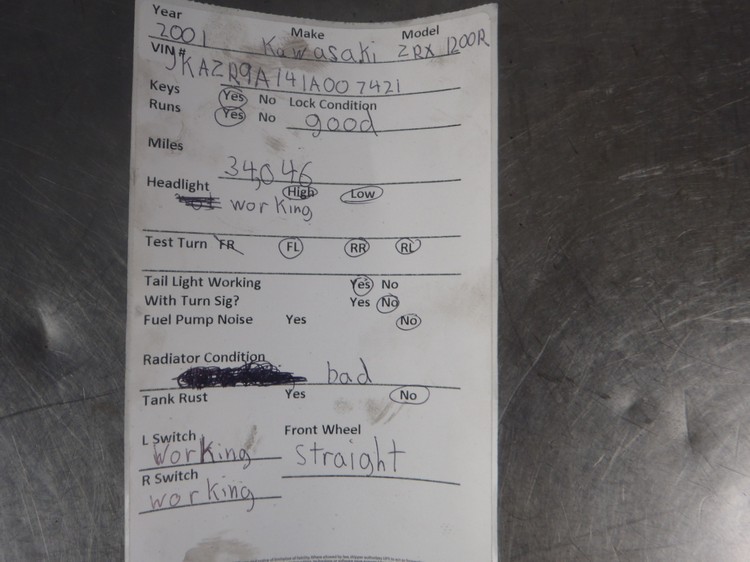 Year Make Model
2001 Kawasaki ZRX 1200R
VIN #
JKAZR9A141A007421
Keys Yes No Lock Condition
Runs Yes No good
Miles
34,046
Headlight High Low
working
Test Turn FR FL RR RL
Tail Light Working Yes No
With Turn Sig? Yes No
Fuel Pump Noise Yes No
Radiator Condition
bad
Tank Rust Yes No
L Switch Front Wheel
working straight
R Switch
working